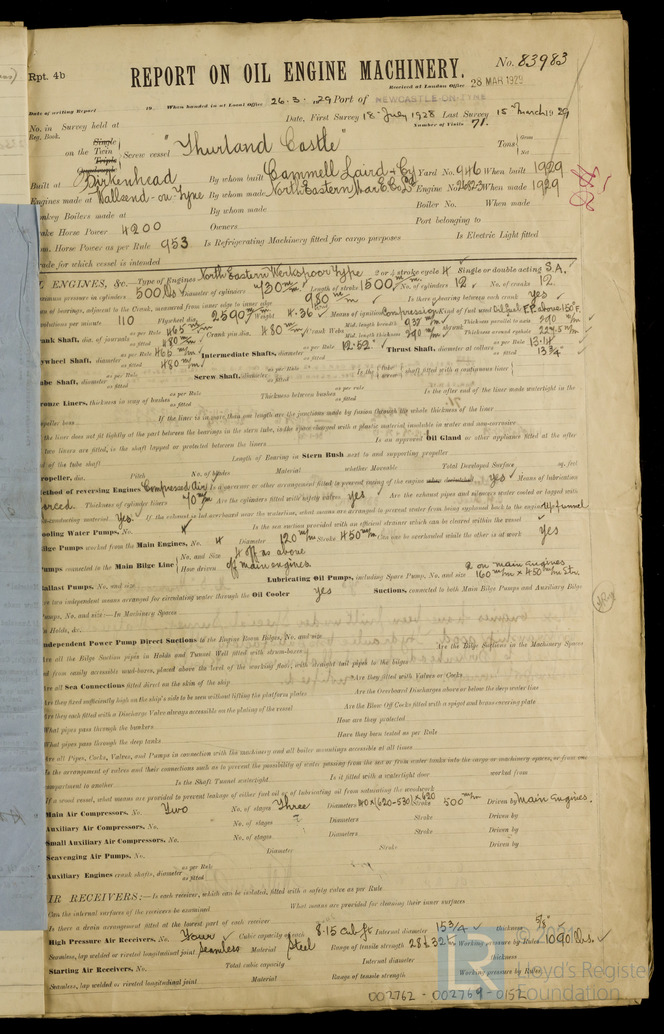 Rpt. 4b
REPORT ON OIL ENGINE MACHINERY.
No. 83983
Received at London Office 28 MAR 1929
Date of writing Report 19 When handed in at Local Office 26.3.1929 Port of NEWCASTLE-ON-TYNE
No. in Reg. Book. Survey held at
Date, First Survey 18 July 1928 Last Survey 15 March 1929
Number of Visits 71.
on the Single Twin Triple Quadruple Screw vessel "Thurland Castle"
Tons Gross Net
Built at Birkenhead By whom built Cammell Laird & Co Yard No. 946 When built 1929
Engines made at Wallsend-on-Tyne By whom made North Eastern Mar. E. Co. Ld Engine No. 2683 When made 1929
Donkey Boilers made at By whom made Boiler No. When made
Brake Horse Power 4200 Owners Port belonging to
Nom. Horse Power as per Rule 953 Is Refrigerating Machinery fitted for cargo purposes Is Electric Light fitted
Trade for which vessel is intended
OIL ENGINES, &c.—Type of Engines North Eastern Werkspoor Type 2 or 4 stroke cycle 4 Single or double acting S.A.
Maximum pressure in cylinders 500 lbs Diameter of cylinders 730 m/m Length of stroke 1500 m/m No. of cylinders 12 No. of cranks 12
Span of bearings, adjacent to the Crank, measured from inner edge to inner edge 980 m/m Is there a bearing between each crank yes
Revolutions per minute 110 Flywheel dia. 2590 m/m Weight 4.36 Means of ignition Compression Kind of fuel used Oil fuel F.P. above 150°F.
Crank Shaft, dia. of journals as per Rule 465 m/m as fitted 480 m/m Crank pin dia. 480 m/m Crank Webs Mid. length breadth 937 m/m Mid. length thickness 290 m/m Thickness parallel to axis 290 m/m Thickness around eyehole 227.5 m/m
Flywheel Shaft, diameter as per Rule 465 m/m as fitted 480 m/m Intermediate Shafts, diameter as per Rule 12.52 as fitted Thrust Shaft, diameter at collars as per Rule 13.14 as fitted 13 3/4"
Tube Shaft, diameter as per Rule as fitted Screw Shaft, diameter as per Rule as fitted Is the tube screw shaft fitted with a continuous liner
Bronze Liners, thickness in way of bushes as per Rule as fitted Thickness between bushes as per rule as fitted Is the after end of the liner made watertight in the
propeller boss If the liner is in more than one length are the junctions made by fusion through the whole thickness of the liner
If the liner does not fit tightly at the part between the bearings in the stern tube, is the space charged with a plastic material insoluble in water and non-corrosive
If two liners are fitted, is the shaft lapped or protected between the liners Is an approved Oil Gland or other appliance fitted at the after
end of the tube shaft Length of Bearing in Stern Bush next to and supporting propeller
Propeller, dia. Pitch No. of blades Material whether Moveable Total Developed Surface sq. feet
Method of reversing Engines Compressed Air Is a governor or other arrangement fitted to prevent racing of the engine yes Means of lubrication
forced Thickness of cylinder liners 70 m/m Are the cylinders fitted with safety valves yes Are the exhaust pipes and silencers water cooled or lagged with
non-conducting material Yes If the exhaust is led overboard near the waterline, what means are arranged to prevent water from being syphoned back to the engine up funnel
Cooling Water Pumps, No. 4 Is the sea suction provided with an efficient strainer which can be cleared within the vessel
Bilge Pumps worked from the Main Engines, No. 4 Diameter 120 m/m Stroke 450 m/m Can one be overhauled while the other is at work yes
Pumps connected to the Main Bilge Line No. and Size 4 off as above How driven off main engines.
Ballast Pumps, No. and size Lubricating Oil Pumps, including Spare Pump, No. and size 2 on main engines. 160 m/m x 450 m/m Str.
Are two independent means arranged for circulating water through the Oil Cooler yes Suctions, connected to both Main Bilge Pumps and Auxiliary Bilge
Pumps, No. and size:—In Machinery Spaces
In Holds, &c.
Independent Power Pump Direct Suctions to the Engine Room Bilges, No. and size
Are all the Bilge Suction pipes in Holds and Tunnel Well fitted with strum-boxes Are the Bilge Suctions in the Machinery Spaces
led from easily accessible mud-boxes, placed above the level of the working floor, with straight tail pipes to the bilges
Are all Sea Connections fitted direct on the skin of the ship Are they fitted with Valves or Cocks
Are they fixed sufficiently high on the ship's side to be seen without lifting the platform plates Are the Overboard Discharges above or below the deep water line
Are they each fitted with a Discharge Valve always accessible on the plating of the vessel Are the Blow Off Cocks fitted with a spigot and brass covering plate
What pipes pass through the bunkers How are they protected
What pipes pass through the deep tanks Have they been tested as per Rule
Are all Pipes, Cocks, Valves, and Pumps in connection with the machinery and all boiler mountings accessible at all times
Is the arrangement of valves and their connections such as to prevent the possibility of water passing from the sea or from water tanks into the cargo or machinery spaces, or from one
compartment to another Is the Shaft Tunnel watertight Is it fitted with a watertight door worked from
If a wood vessel, what means are provided to prevent leakage of either fuel oil or lubricating oil from saturating the woodwork
Main Air Compressors, No. Two No. of stages Three Diameters 140 x (620-530) x 620 Stroke 500 m/m Driven by Main Engines.
Auxiliary Air Compressors, No. No. of stages Diameters Stroke Driven by
Small Auxiliary Air Compressors, No. No. of stages Diameters Stroke Driven by
Scavenging Air Pumps, No. Diameter Stroke Driven by
Auxiliary Engines crank shafts, diameter as per Rule as fitted
AIR RECEIVERS:—Is each receiver, which can be isolated, fitted with a safety valve as per Rule
Can the internal surfaces of the receivers be examined What means are provided for cleaning their inner surfaces
Is there a drain arrangement fitted at the lowest part of each receiver
High Pressure Air Receivers, No. Four Cubic capacity of each 8.15 Cub. ft Internal diameter 15 3/4 thickness 5/8"
Seamless, lap welded or riveted longitudinal joint Seamless Material Steel Range of tensile strength 28 to 32 Working pressure by Rules 1090 lbs.
Starting Air Receivers, No. Total cubic capacity Internal diameter thickness
Seamless, lap welded or riveted longitudinal joint Material Range of tensile strength Working pressure by Rules
© 2021
Lloyd's Register
Foundation
002762 - 002769 - 0152